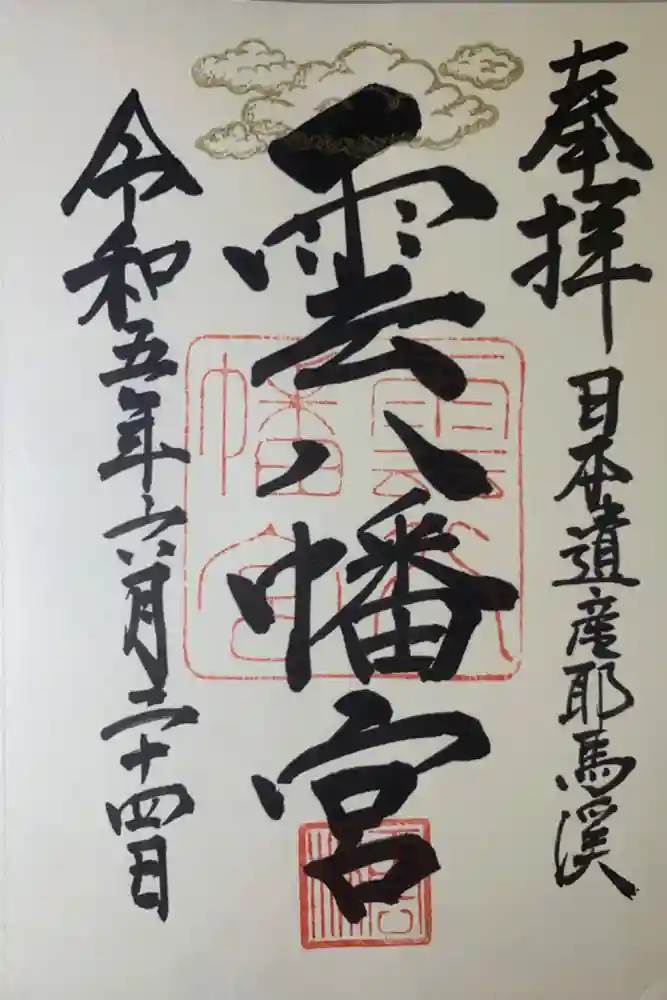 奉拝
日本遺産耶馬溪
雲八幡宮
雲八幡宮
令和五年六月二十四日